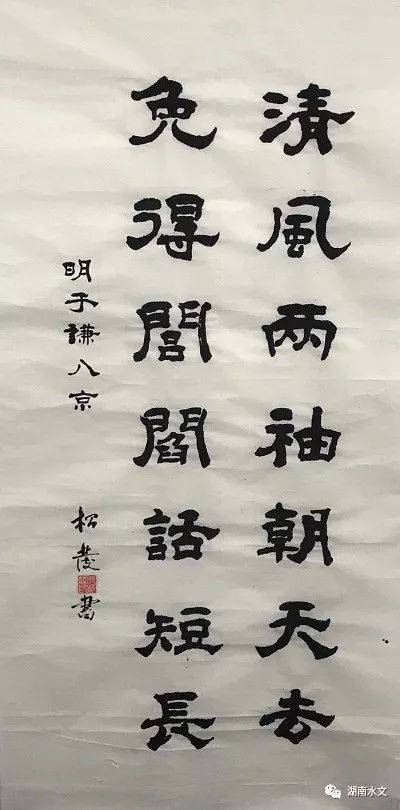 清風两袖朝天去
免得閭閻話短長
明于謙入京
松 書
湖南水文